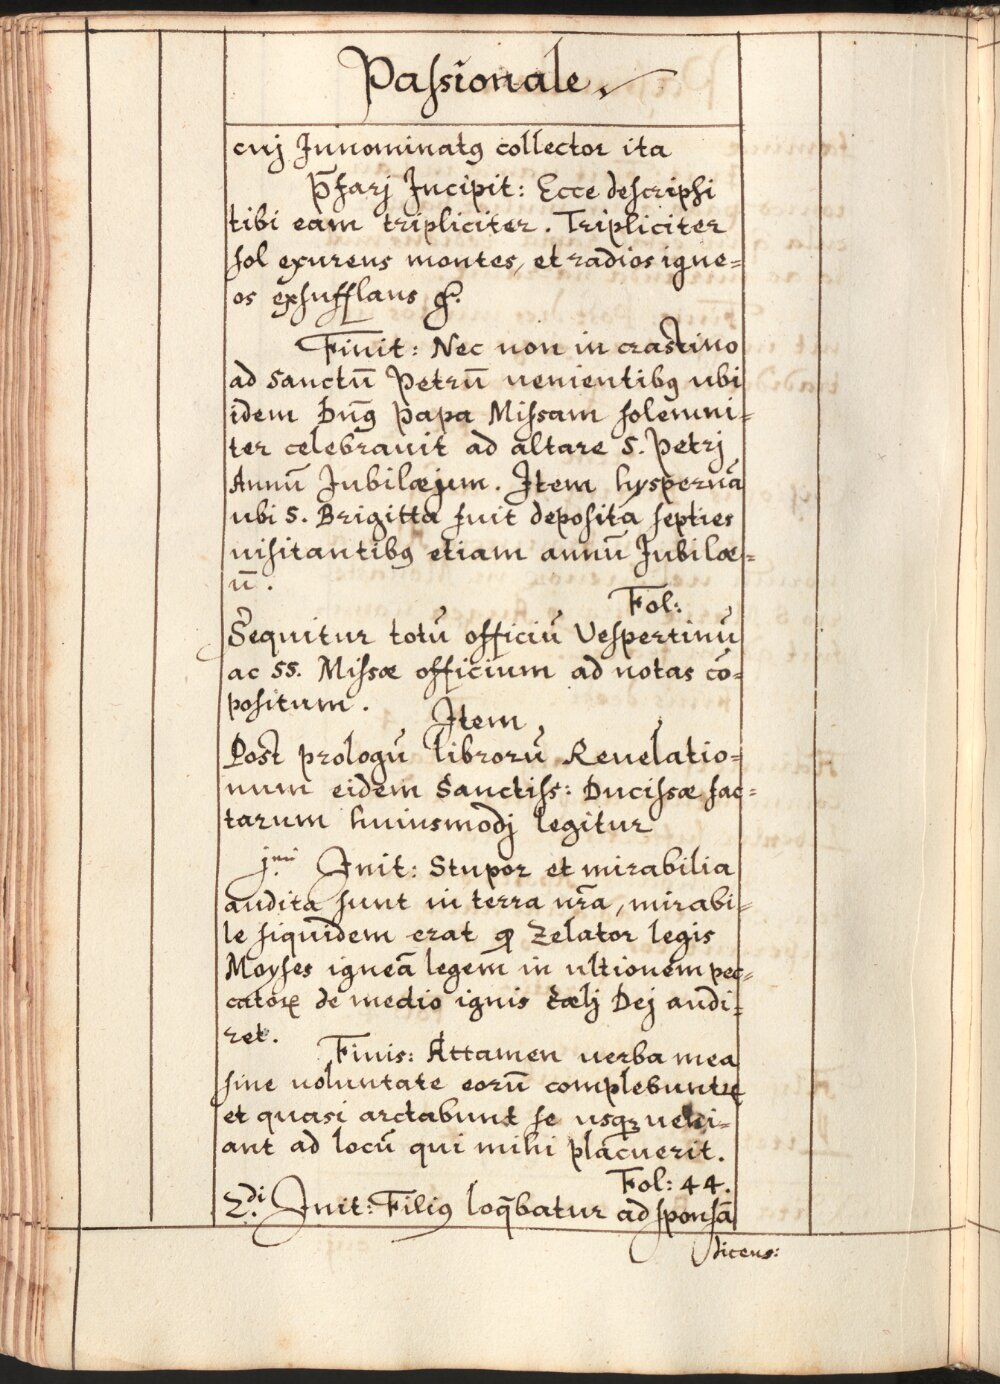 Paſsionale.
cuj Innominatꝰ collector ita
p̄farj Incipit: Ecce deſcripſi
tibi eam tripliciter. Tripliciter
ſol exurens montes, et radios igne=
os exſufflans &.
Finit: Nec non in crastino
ad Sanctū Petrū uenientibꝰ ubi
idem Dn̄ꝰ Papa Miſsam ſolemni=
ter celebrauit ad altare S. Petrj
Annū Jubilæjum. Item hyspernā
ubi S. Brigitta fuit deposita ſepties
uiſitantibꝰ etiam annū Jubilæ=
ū.
Fol:
Sequitur totū officiū Veſpertinū
ac SS. Miſsæ officium ad notas cō=
poſitum.
Item
Post prologū librorū Reuelatio=
num eidem Sanctiſs: Duciſsæ fac=
tarum huiusmodj legitur
j.mi Init: Stupor et mirabilia
audita ſunt in terra nr̄a, mirabi=
le ſiquidem erat ꝙ Zelator legis
Moyſes igneā legem in ultionem pec=
catoꝝ de medio ignis cælj Dej audi=
ret.
Finis: Attamen uerba mea
ſine uoluntate eorū complebuntur
et quasi arctabunt ſe usqꝫ ueni=
ant ad locū qui mihi placuerit.
Fol: 44.
2.di Init: Filiꝰ loq̄batur ad ſponſā
dicens: